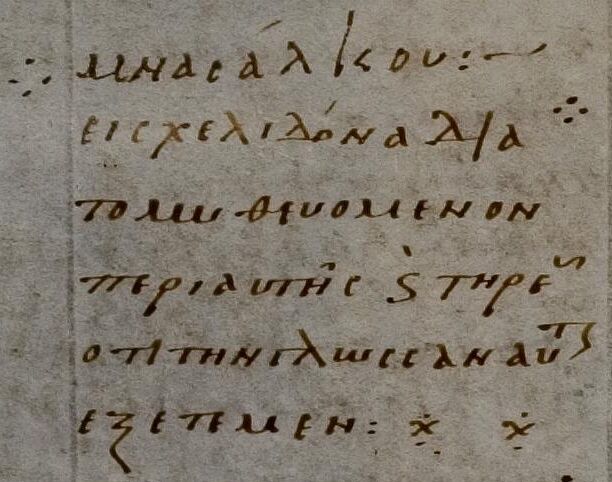 μνασάλκου:~
εις χελιδόνα δια
το μυθευομενον
περι αυτῆς ϗ τηρε
οτι την γλωσσαν αυτ
εξετεμεν: